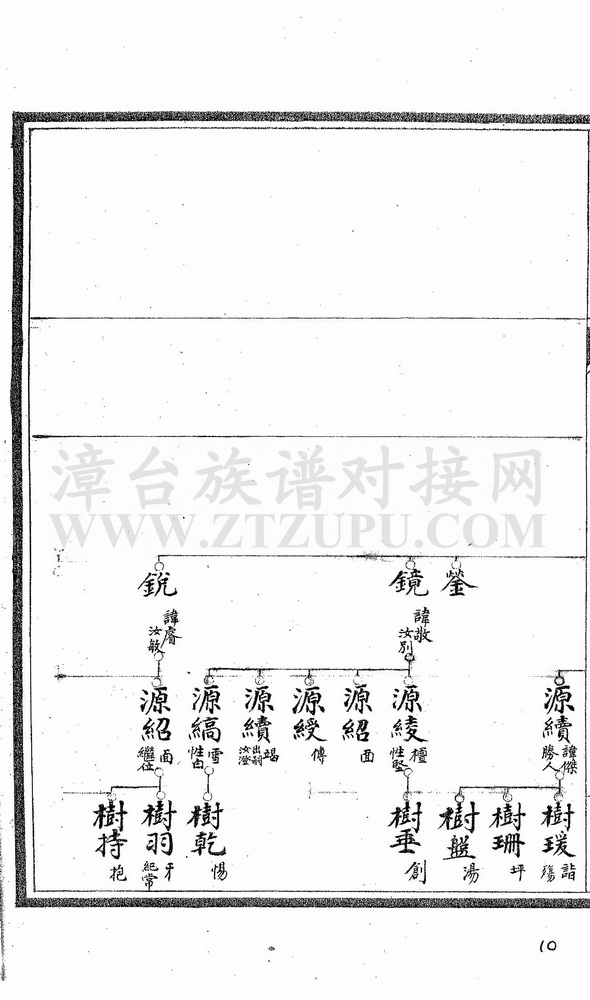 漳台族谱对接网
WWW.ZTZUPU.COM
鎣
鏡
諱敬
汝別
銳
諱睿
汝敏
源續
諱傑
勝人
源綾
櫃
性堅
源紹
面
源綬
傳
源續
竭
出嗣
汝澄
源縞
雪
性白
源紹
面
繼位
樹瑗
詣
殤
樹珊
坪
樹盤
湯
樹垂
創
樹乾
惕
樹羽
牙
紀常
樹持
抱
10